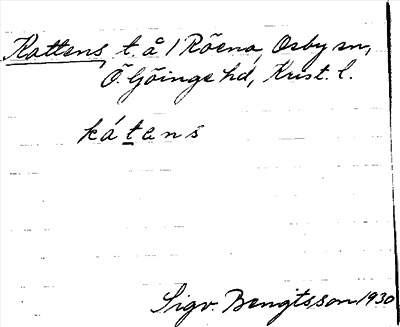 Kattens, t. å 1 Röena, Osby sn,
Ö. Göinge hd, Krist. l.
kátens
Sigv. Bengtsson 1930